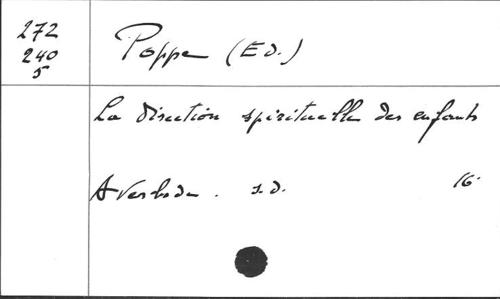 272
240
5
Poppe (Ed.)
La direction spirituelle des enfants
Averbode. s.d. 16°